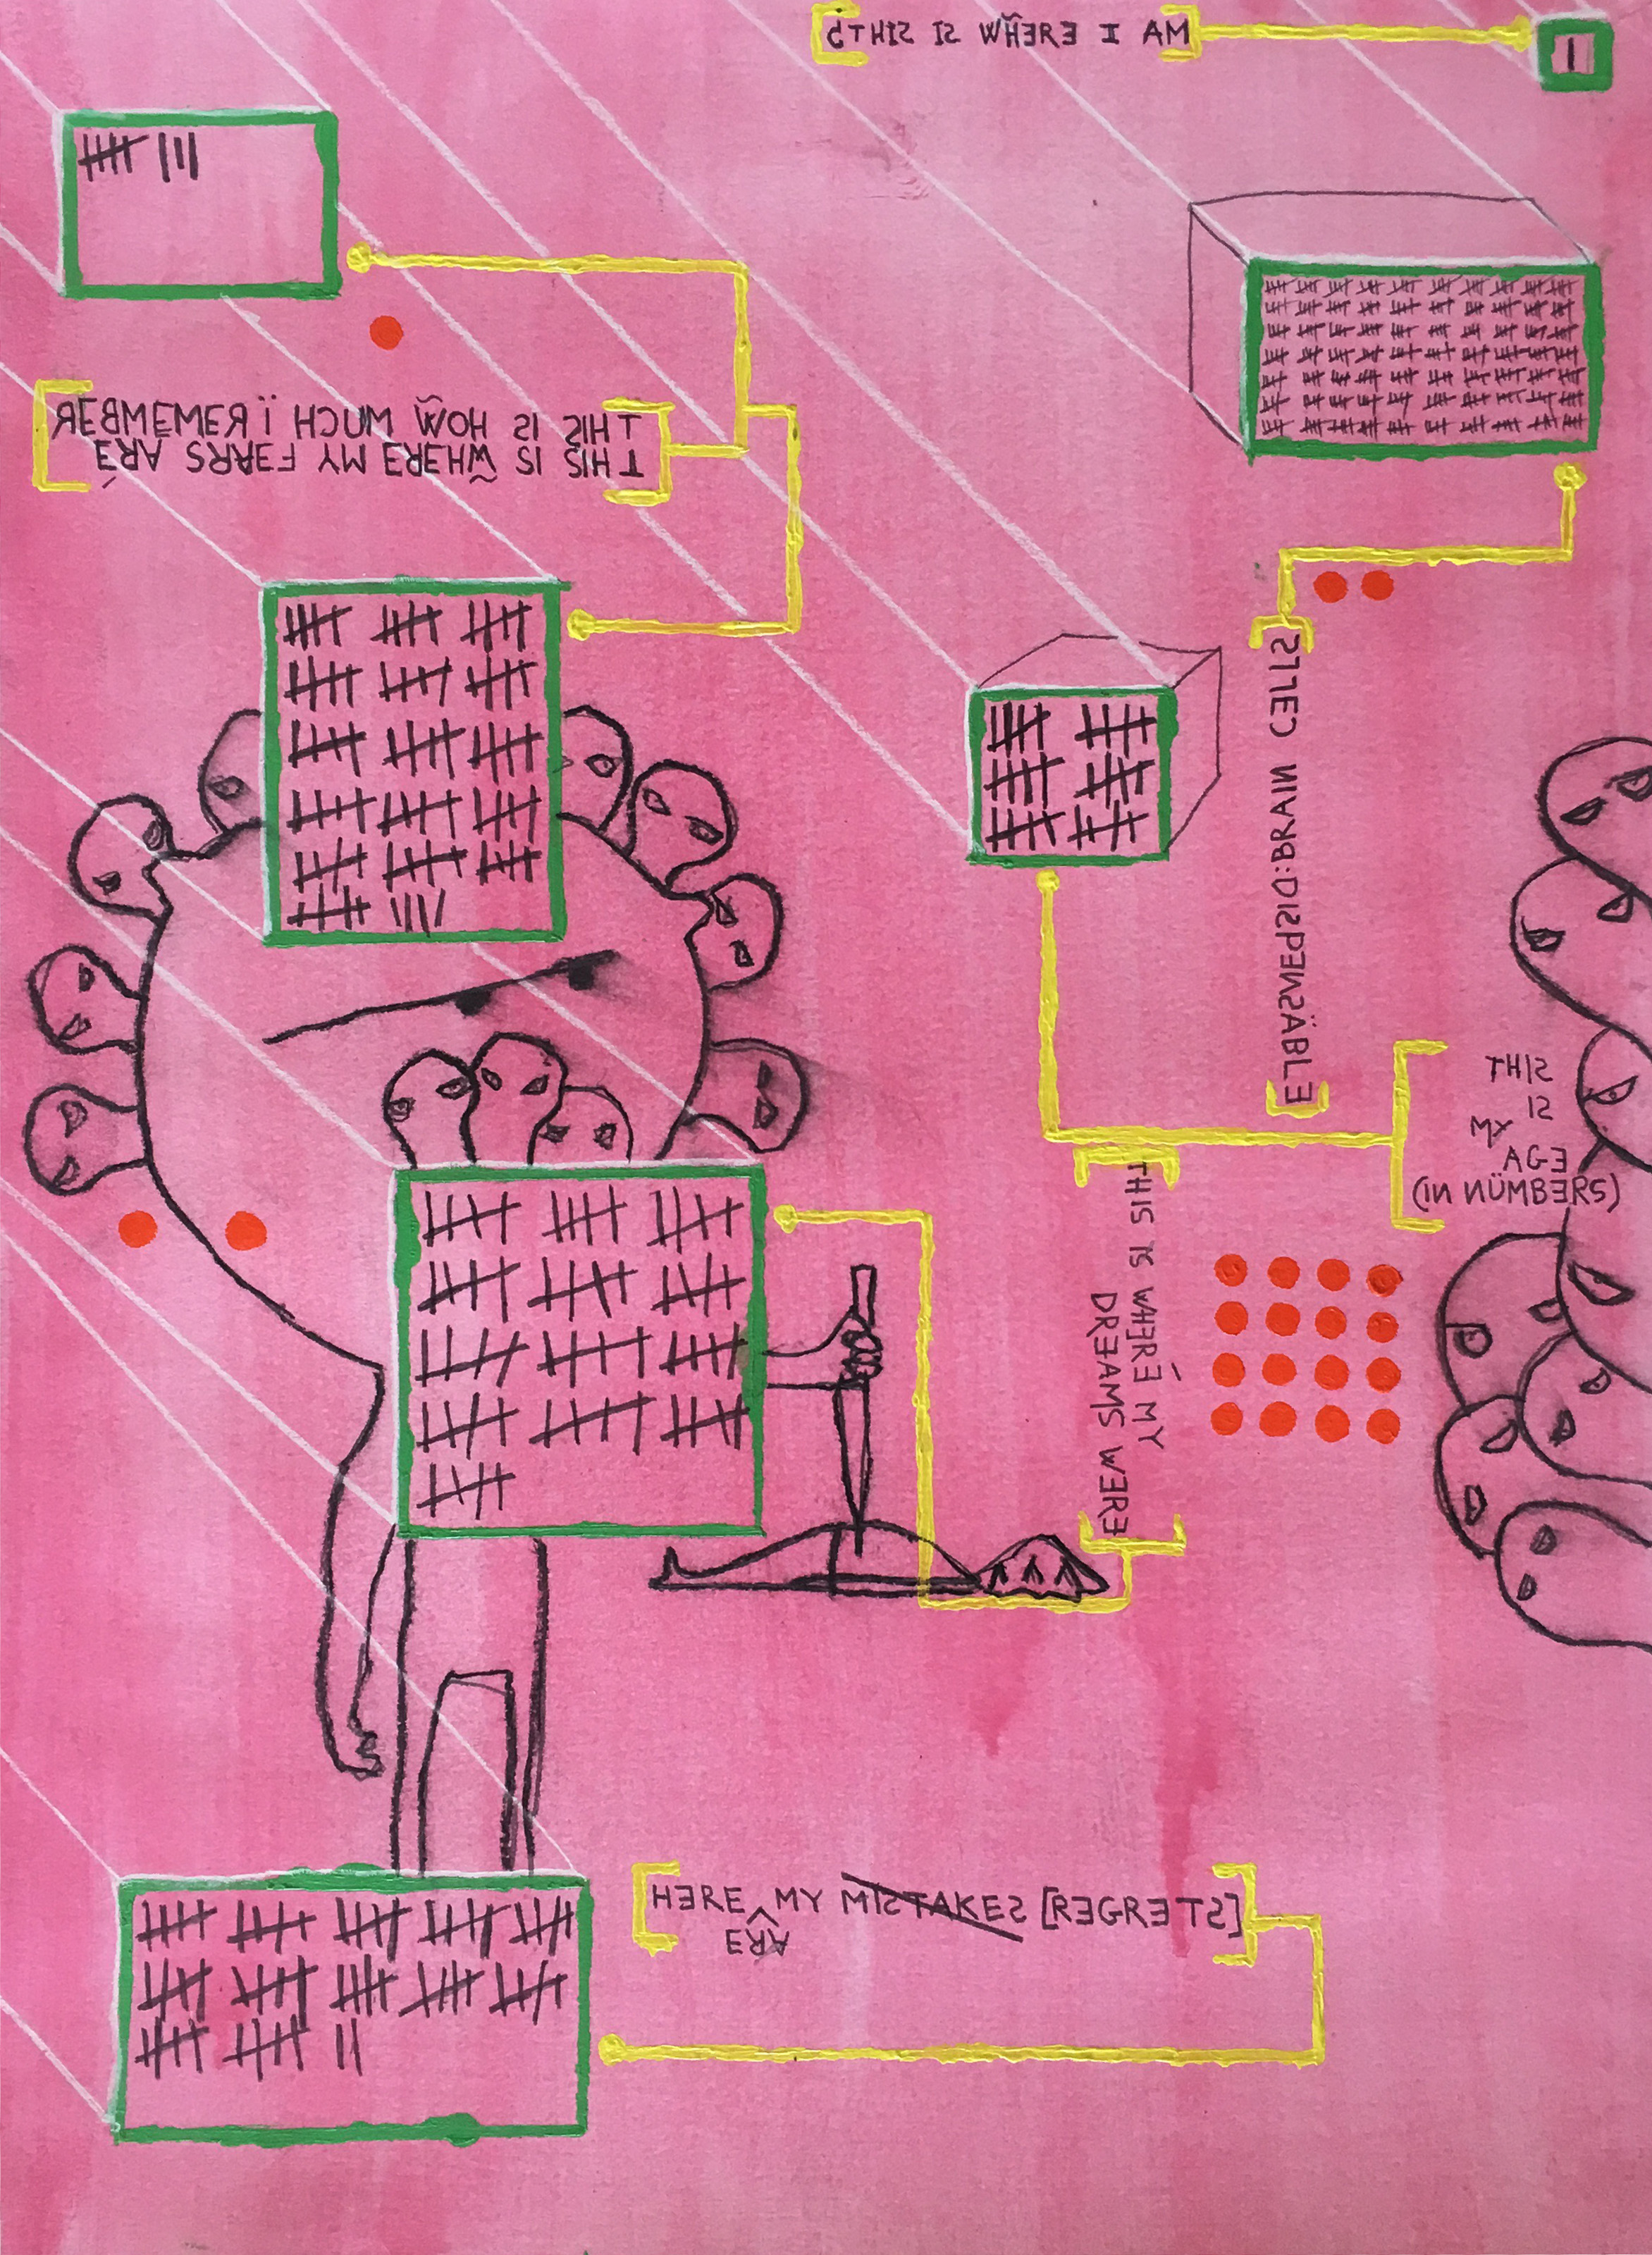 ¿THIS IS W̃HERE I AM
THIS IS W̃HERE MY FEARS ARÉ
THIS IS HOW̃ MUCH Ï REMEMBER
DISPENSÄBLE:BRAIN CELLS
THIS
IS
MY
AGE
(IN NÜMBERS)
THIS IS WHERÉ MY
DREAMS WERE
HERE MY MISTAKES [REGRETS]
ARE